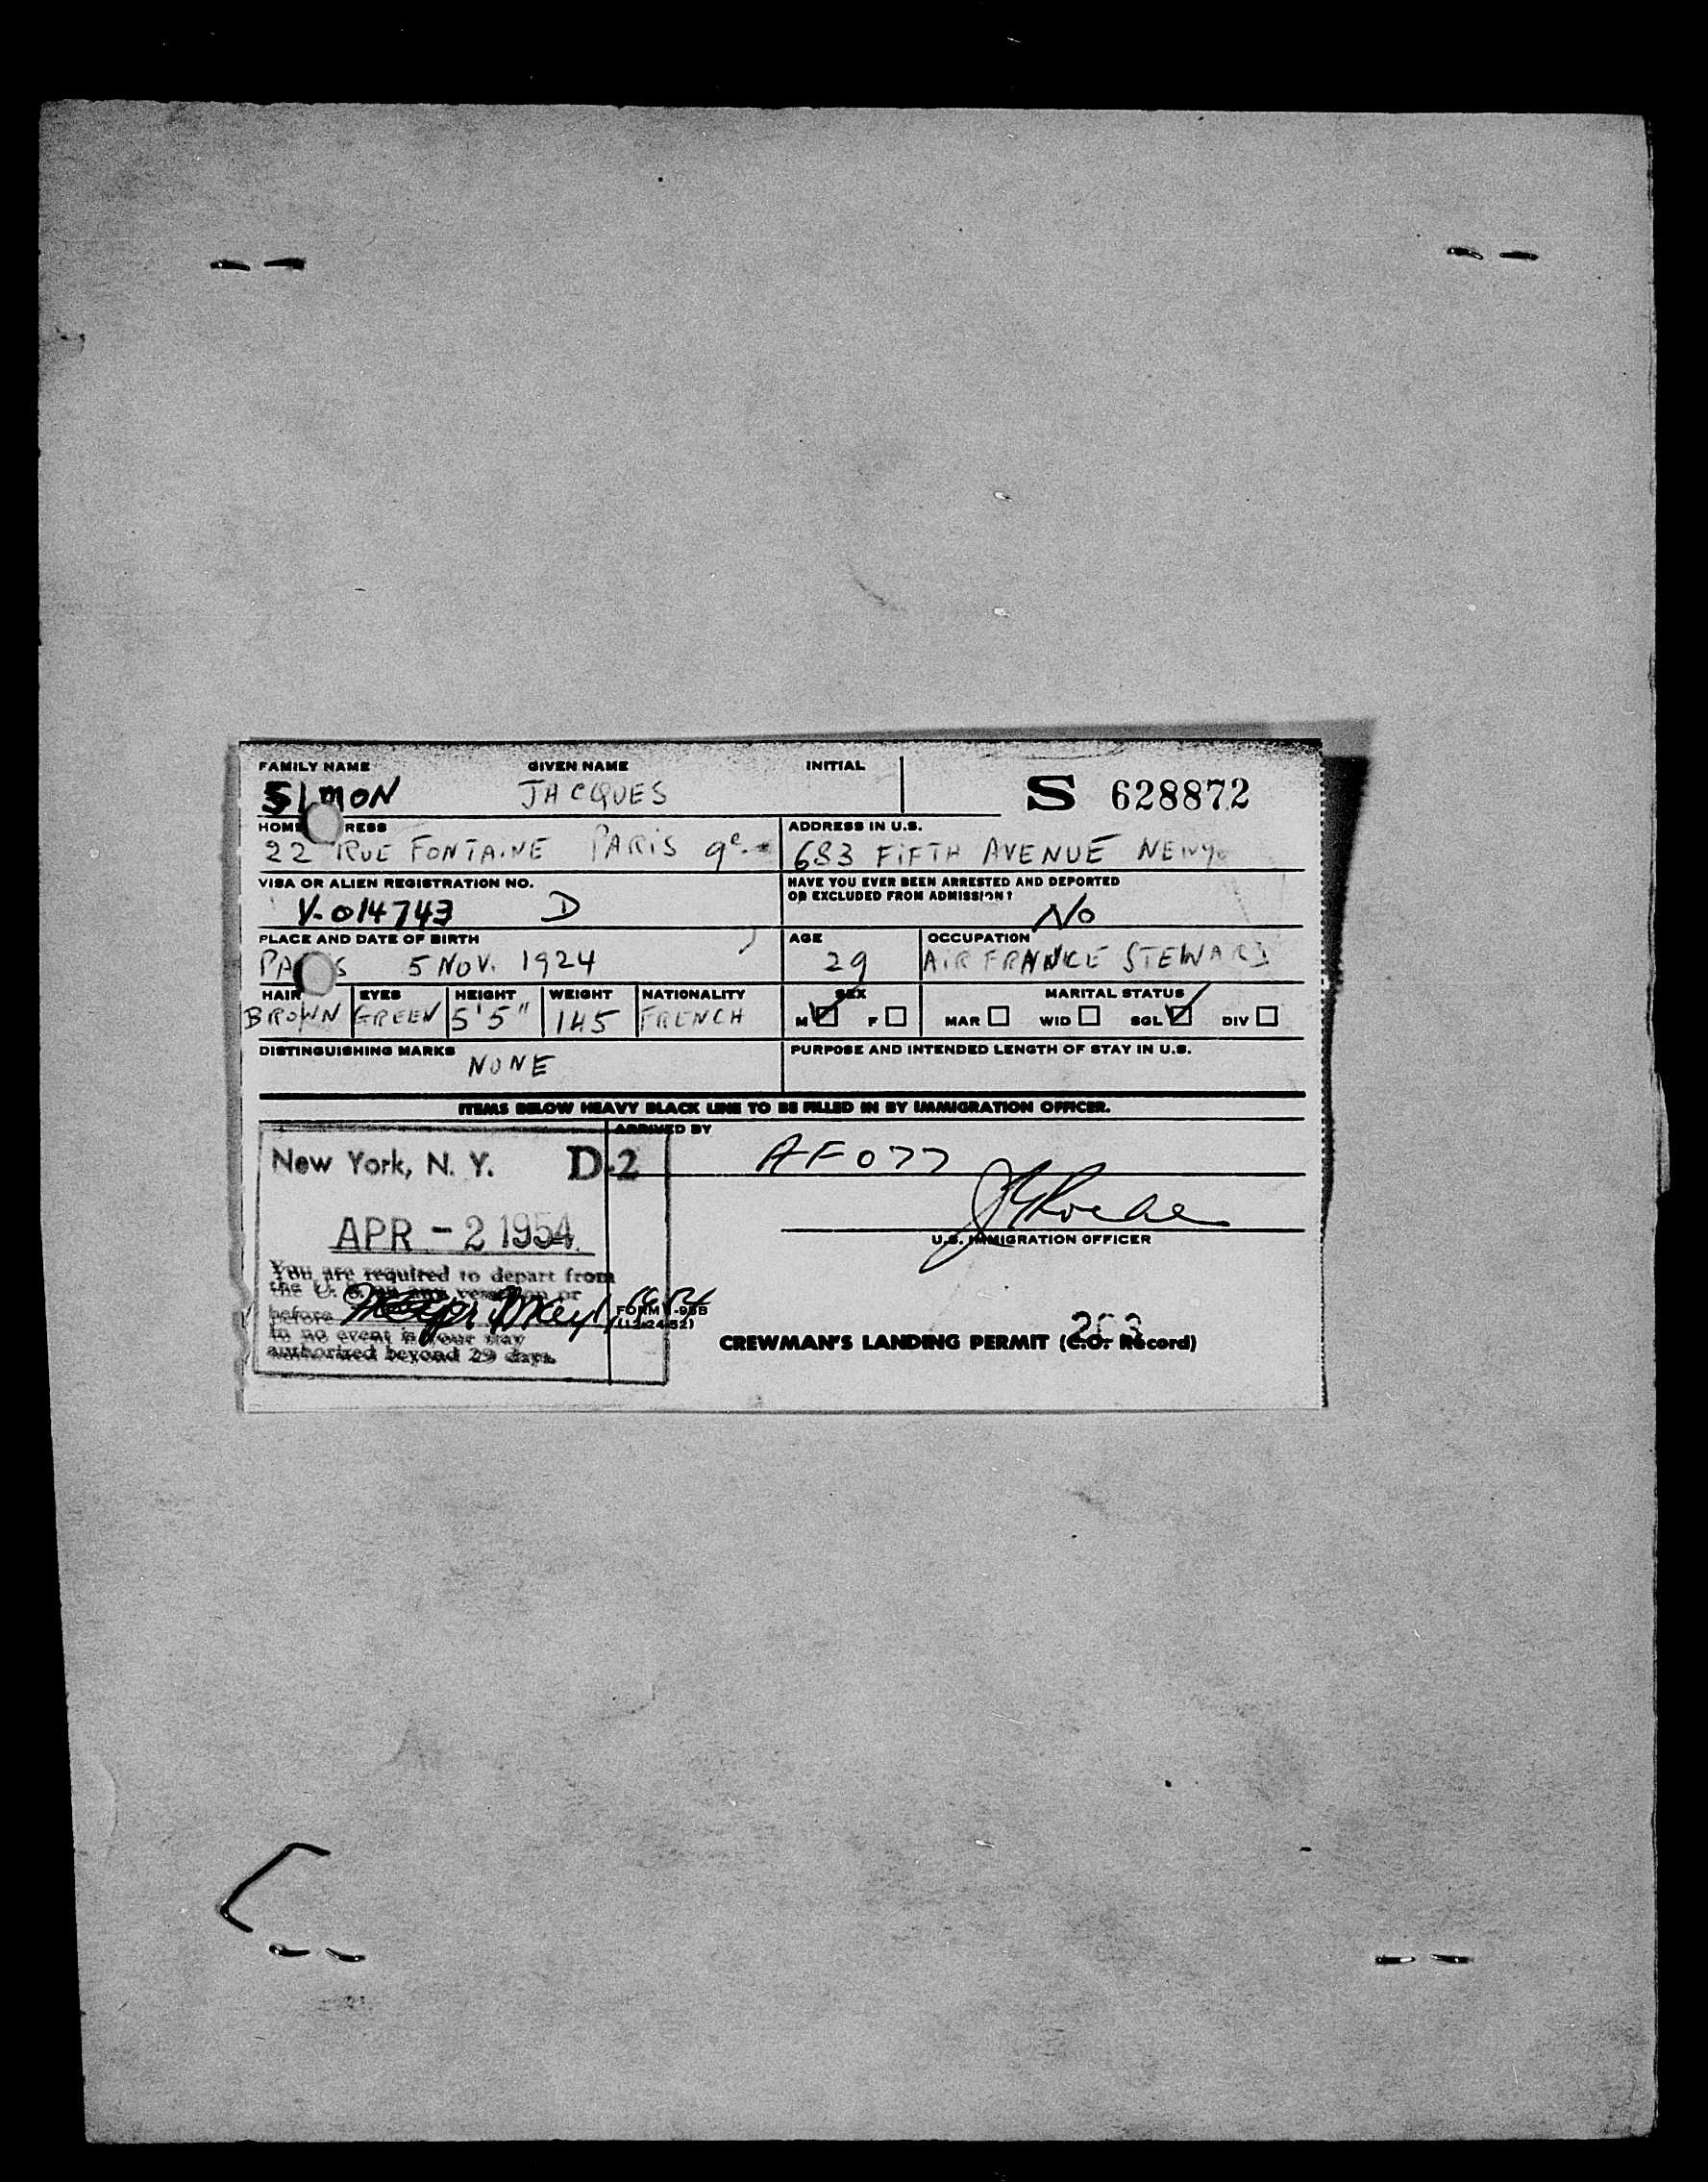 FAMILY NAME GIVEN NAME INITIAL
SIMON JACQUES S 628872
HOME RESS ADDRESS IN U.S.
22 RUE FONTAINE PARIS 9e. 683 FIFTH AVENUE NEW
VISA OR ALIEN REGISTRATION NO. HAVE YOU EVER BEEN ARRESTED AND DEPORTED
OR EXCLUDED FROM ADMISSION?
V-014743 D No
PLACE AND DATE OF BIRTH AGE OCCUPATION
PA S 5 NOV. 1924 29 AIR FRANCE STEWARD
HAIR EYES HEIGHT WEIGHT NATIONALITY SEX MARITAL STATUS
BROWN GREEN 5'5" 145 FRENCH M F MAR WID SGL DIV
DISTINGUISHING MARKS NONE PURPOSE AND INTENDED LENGTH OF STAY IN U.S.
ITEMS BELOW HEAVY BLACK LINE TO BE FILLED IN BY IMMIGRATION OFFICER.
ARRIVED BY
New York, N. Y. D-2 AF 077
APR - 2 1954
U.S. IMMIGRATION OFFICER
You are required to depart from
the U. S. on any vessel on or
before May 1, 1954
In no event is your stay
authorized beyond 29 days.
FORM I-95B
(12-24-52)
CREWMAN'S LANDING PERMIT (C.O. Record)